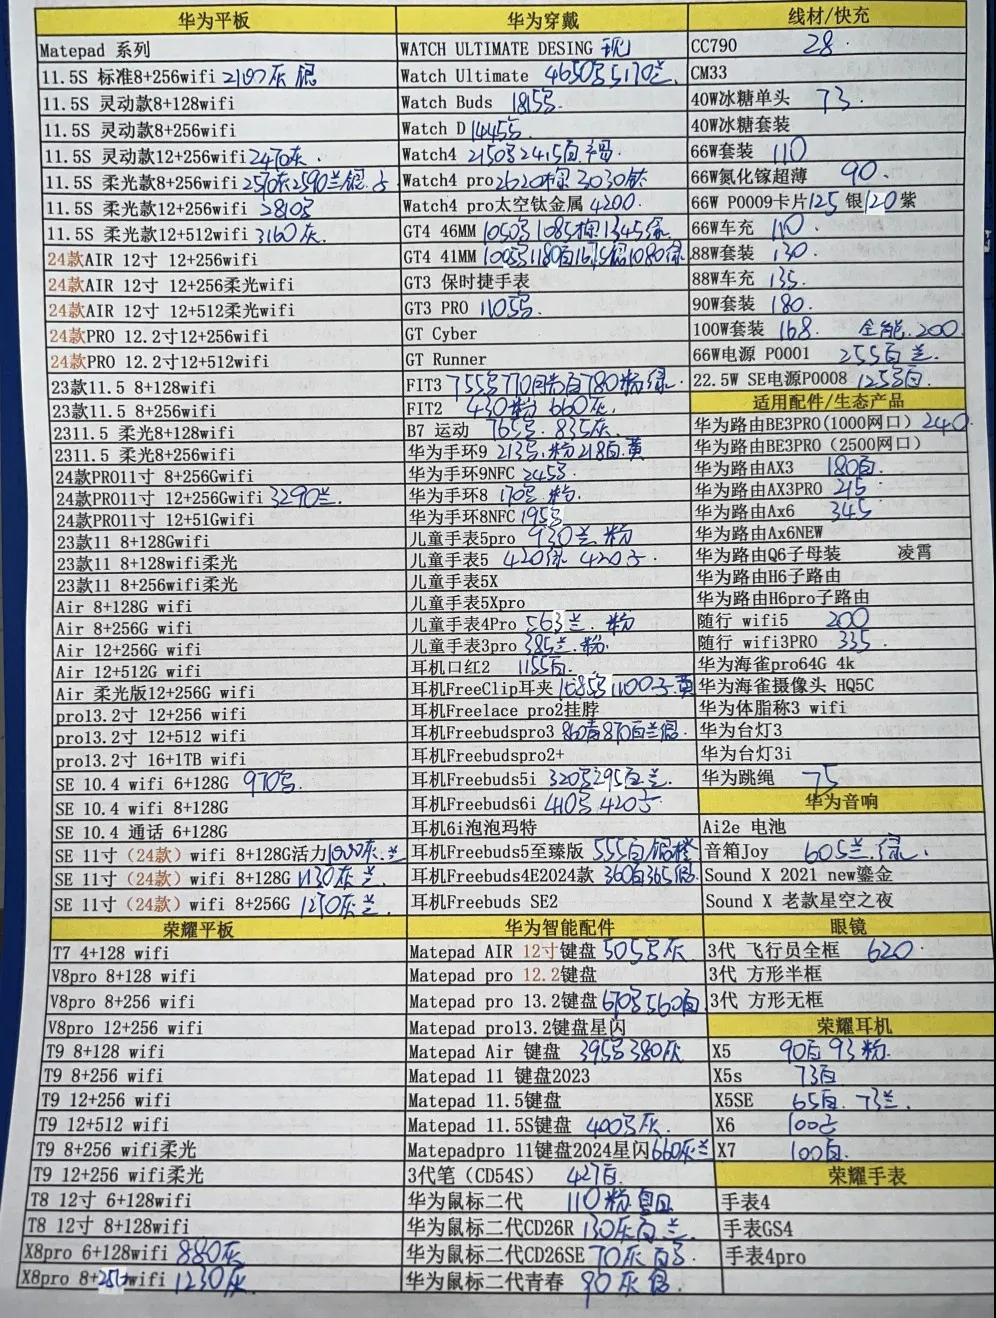 华为平板
Matepad 系列
11.5S 标准8+256wifi 2100灰 银
11.5S 灵动款8+128wifi
11.5S 灵动款8+256wifi
11.5S 灵动款12+256wifi 2470灰.
11.5S 柔光款8+256wifi
11.5S 柔光款12+256wifi
11.5S 柔光款12+512wifi 3160灰.
24款AIR 12寸 12+256wifi
24款AIR 12寸 12+256柔光wifi
24款AIR 12寸 12+512柔光wifi
24款PRO 12.2寸12+256wifi
24款PRO 12.2寸12+512wifi
23款11.5 8+128wifi
23款11.5 8+256wifi
2311.5 柔光8+128wifi
2311.5 柔光8+256wifi
24款PRO11寸 8+256Gwifi
24款PRO11寸 12+256Gwifi 3290兰.
24款PRO11寸 12+51Gwifi
23款11 8+128Gwifi
23款11 8+128wifi柔光
23款11 8+256wifi柔光
Air 8+128G wifi
Air 8+256G wifi
Air 12+256G wifi
Air 12+512G wifi
Air 柔光版12+256G wifi
pro13.2寸 12+256 wifi
pro13.2寸 12+512 wifi
pro13.2寸 16+1TB wifi
SE 10.4 wifi 6+128G
SE 10.4 wifi 8+128G
SE 10.4 通话 6+128G
SE 11寸（24款）wifi 8+128G活力
SE 11寸（24款）wifi 8+128G 1130灰 兰
SE 11寸（24款）wifi 8+256G 1270灰 兰.
荣耀平板
T7 4+128 wifi
V8pro 8+128 wifi
V8pro 8+256 wifi
V8pro 12+256 wifi
T9 8+128 wifi
T9 8+256 wifi
T9 12+256 wifi
T9 12+512 wifi
T9 8+256 wifi柔光
T9 12+256 wifi柔光
T8 12寸 6+128wifi
T8 12寸 8+128wifi
X8pro 6+128wifi 880灰
X8pro 8+256wifi 1230灰
华为穿戴
WATCH ULTIMATE DESING
Watch Ultimate
Watch Buds
Watch D
Watch4
Watch4 pro
Watch4 pro太空钛金属 4200.
GT4 46MM
GT4 41MM
GT3 保时捷手表
GT3 PRO
GT Cyber
GT Runner
FIT3
FIT2 430粉 660灰.
B7 运动
华为手环9
华为手环9NFC
华为手环8
华为手环8NFC
儿童手表5pro 930兰 粉
儿童手表5
儿童手表5X
儿童手表5Xpro
儿童手表4Pro 563兰. 粉
儿童手表3pro 385兰.粉.
耳机口红2 1155白.
耳机FreeClip耳夹
耳机Freelace pro2挂脖
耳机Freebudspro3
耳机Freebudspro2+
耳机Freebuds5i
耳机Freebuds6i
耳机6i泡泡玛特
耳机Freebuds5至臻版
耳机Freebuds4E2024款 360白365银.
耳机Freebuds SE2
华为智能配件
Matepad AIR 12寸键盘
Matepad pro 12.2键盘
Matepad pro 13.2键盘
Matepad pro13.2键盘星闪
Matepad Air 键盘
Matepad 11 键盘2023
Matepad 11.5键盘
Matepad 11.5S键盘
Matepadpro 11键盘2024星闪 660灰兰
3代笔（CD54S） 427白.
华为鼠标二代
华为鼠标二代CD26R 130灰白 兰.
华为鼠标二代CD26SE
华为鼠标二代青春 90灰 银.
线材/快充
CC790 28.
CM33
40W冰糖单头 73.
40W冰糖套装
66W套装 110
66W氮化镓超薄 90.
66W P0009卡片125 银120紫
66W车充 110.
88W套装 130.
88W车充 135.
90W套装 180.
100W套装 168. 全能.200.
66W电源 P0001 255白 兰.
22.5W SE电源P0008
适用配件/生态产品
华为路由BE3PRO(1000网口) 240
华为路由BE3PRO（2500网口）
华为路由AX3 180白.
华为路由AX3PRO 215
华为路由Ax6 345
华为路由Ax6NEW
华为路由Q6子母装 凌霄
华为路由H6子路由
华为路由H6pro子路由
随行 wifi5 200
随行 wifi3PRO 335.
华为海雀pro64G 4k
华为海雀摄像头 HQ5C
华为体脂称3 wifi
华为台灯3
华为台灯3i
华为跳绳 75
华为音响
Ai2e 电池
音箱Joy 605兰.绿.
Sound X 2021 new鎏金
Sound X 老款星空之夜
眼镜
3代 飞行员全框 620.
3代 方形半框
3代 方形无框
荣耀耳机
X5 90白 93粉.
X5s 73白
X5SE 65白. 73兰.
X6
X7 100白.
荣耀手表
手表4
手表GS4
手表4pro